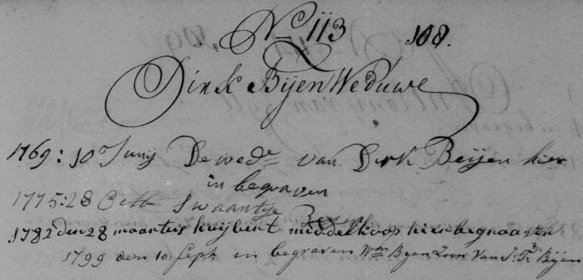 No 113 108.
Dirk Bijen Weduwe
1769: 10 Junij De wede van Dirk Beijen hier
in begraven
1775:28 Octb Swaantje
1782 den 28 maart is huijbert middelkoop hier begraaven
1799 den 10 Sept in begraven Wm Byen Zoon Van J: Ds Bijen